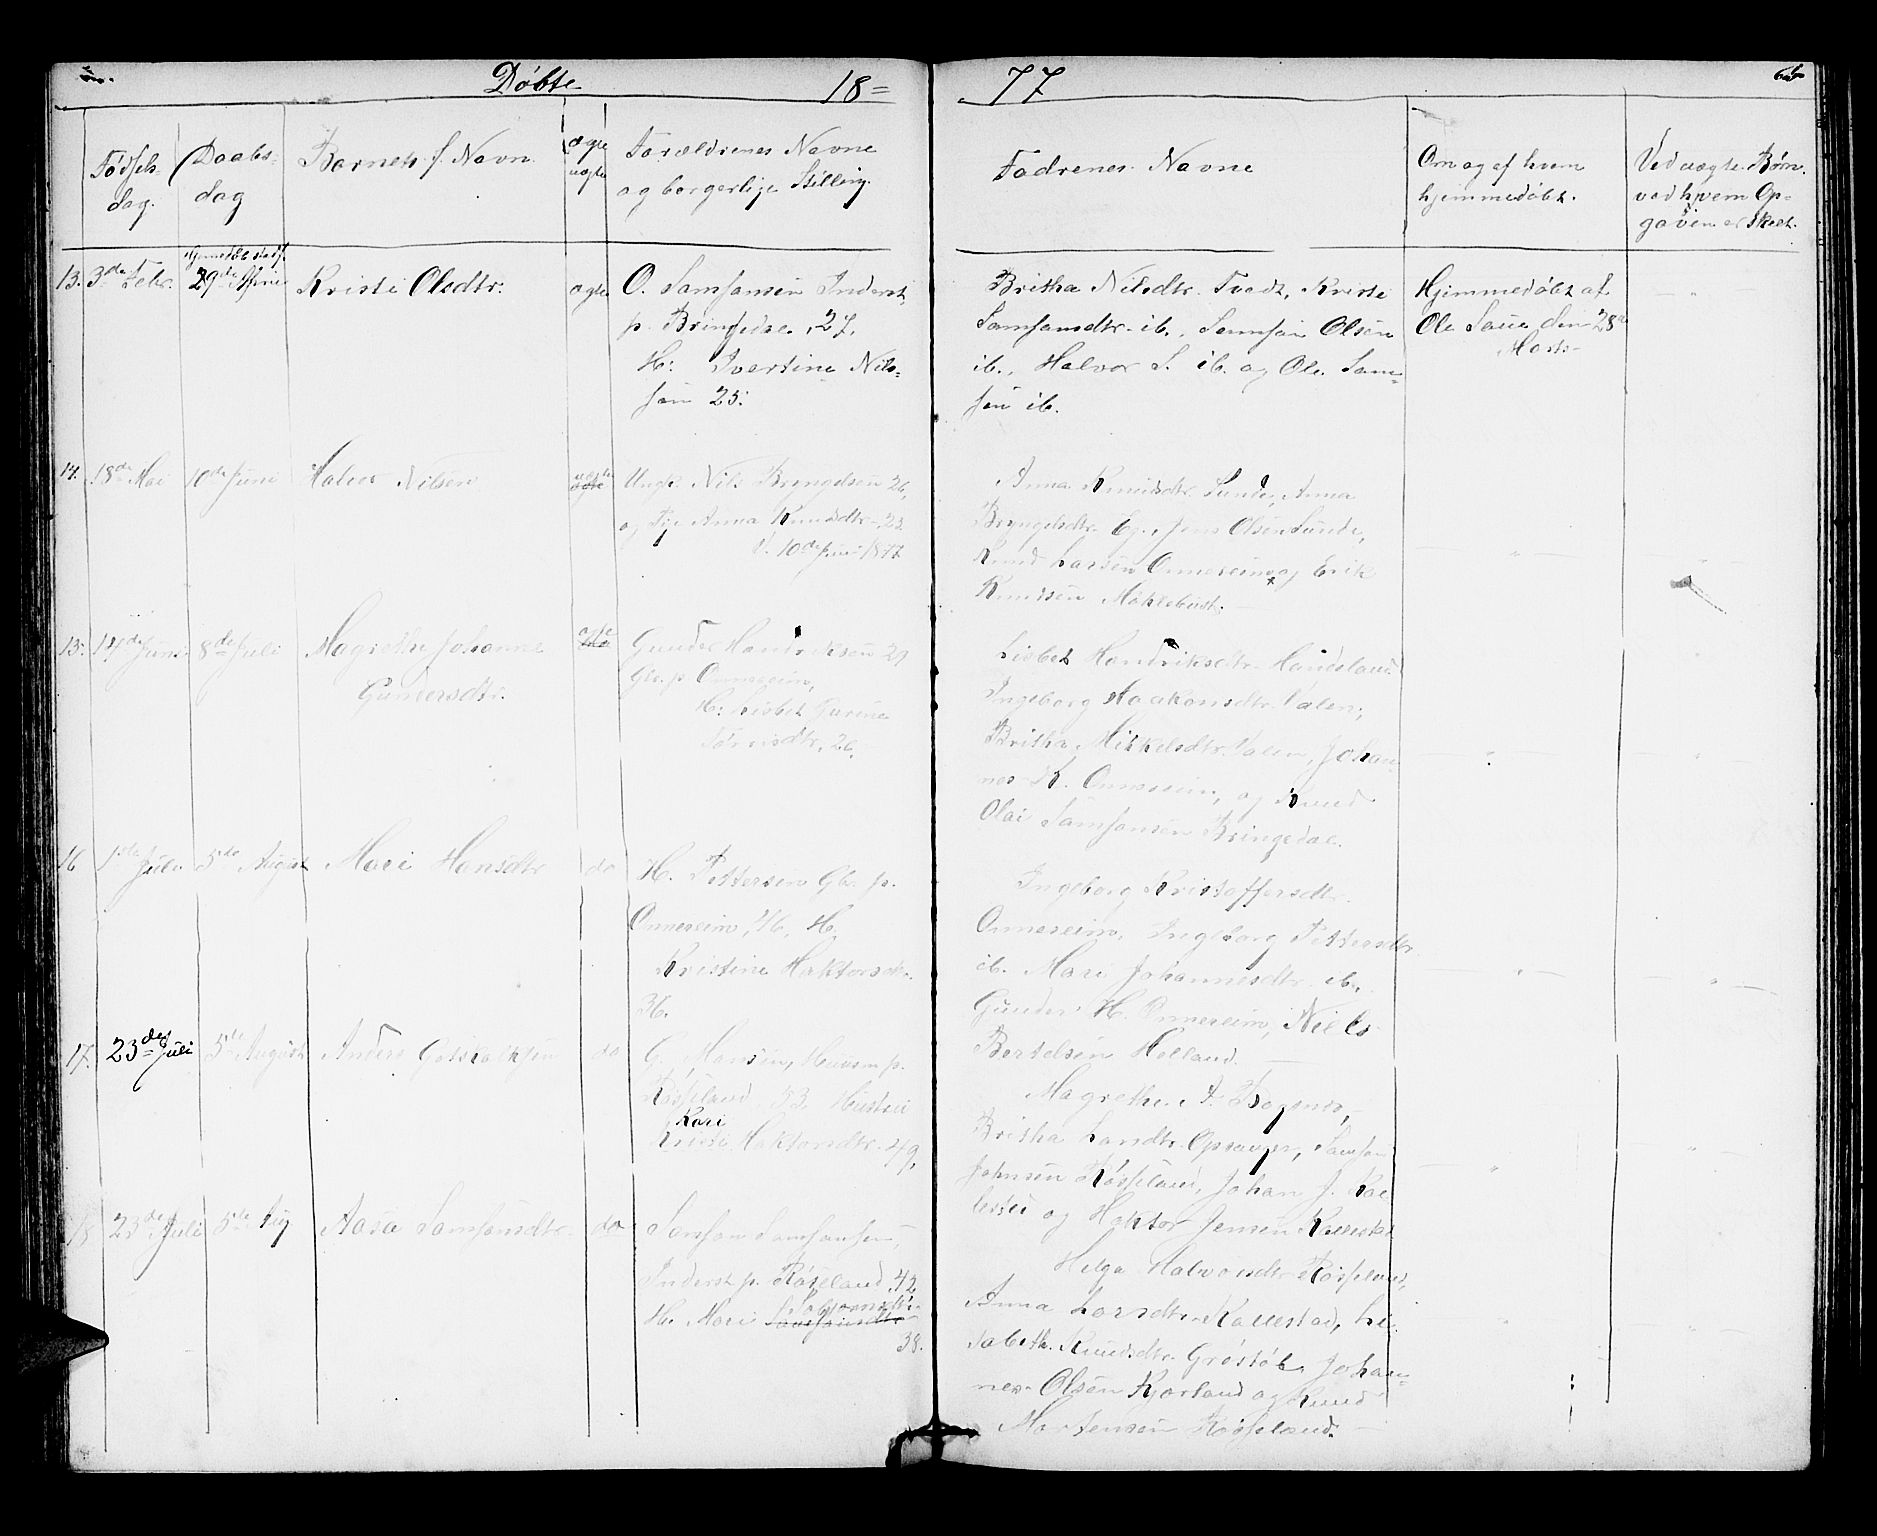 Døbte 18= 77
Fødsels-
dag.
Daabs-
dag
Barnets f. Navn
ægte
uægte
Forældrenes Navne
og borgerlige Stilling.
Fadrenes Navne
Om og af hvem
hjemmedøbt.
Ved uægte Børn.
ved hvem Op-
gaven er skeet.
13. 3de Febr. 29de April Kristi Olsdtr. ægte
O. Samsonsen Inderst
p. Bringedal, 27,
H: Ivertine Nils-
sen 25.
Britha Nilsdtr. Tvedt, Kristi
Samsonsdtr. ib., Samson Olsen
ib., Halvor S. ib. og Ole Sam-
sen ib.
Hjemmedøbt af
Ole Saue den 28de
Marts
14. 18de Mai 10de Juni Halvor Nilsen
Ungk. Nils Bryngelsen 26,
og Pige Anna Knudsdtr. 23
V. 10de Juni 1877
Anna Knudsdtr. Sunde, Anna
Bryngelsdtr. Eg. Jens Olsen Sunde,
Knud Larsen Ommereim og Erik
Knudsen Møklebust.
15. 14de Juni 8de Juli Magrethe Johanne
Gundersdtr.
Gunder Hendriksen 29
Gbr. p. Ommereim,
H: Lisbet Gurine
26.
Lisbet Hendriksdtr. Handeland
Ingeborg Haakonsdtr. Valen,
Britha Mikkelsdtr. Valen, Johan-
nes K. Ommereim, og Knud
Olai Samsonsen Bringedal.
16 1ste Juli 5te August Mari Hansdtr. do
H. Pettersen Gbr. p.
Ommereim, 46, H.
Kristine Haktorsdtr.
36.
Ingeborg Kristoffersdtr.
Ommereim, Ingeborg Pettersdtr.
ib. Mari Johannesdtr. ib.,
Gunder H. Ommereim, Niels
Bertelsen Helland.
17. 23de Juli 5te August Anders Gotskalksen do
G. Monsen, Huusm. p.
Røsseland 53. Hustru
Kari
Haktorsdtr. 49,
Magrethe A.
Britha Larsdtr. Opsanger, Samson
Johnsen Røsseland, Johan J. Kal-
lestad og Haktor Jensen Kallestad
18 23de Juli 5te Aug Aasa Samsonsdtr. do
Samson Samsonsen,
Inderst p. Røsseland 42
H. Mari
38.
Helga Halvorsdtr. Røsseland,
Anna Larsdtr. Kallestad, Li-
sabeth Knudsdtr. Johan-
nes Olsen og Knud
Mortensen Røsseland.